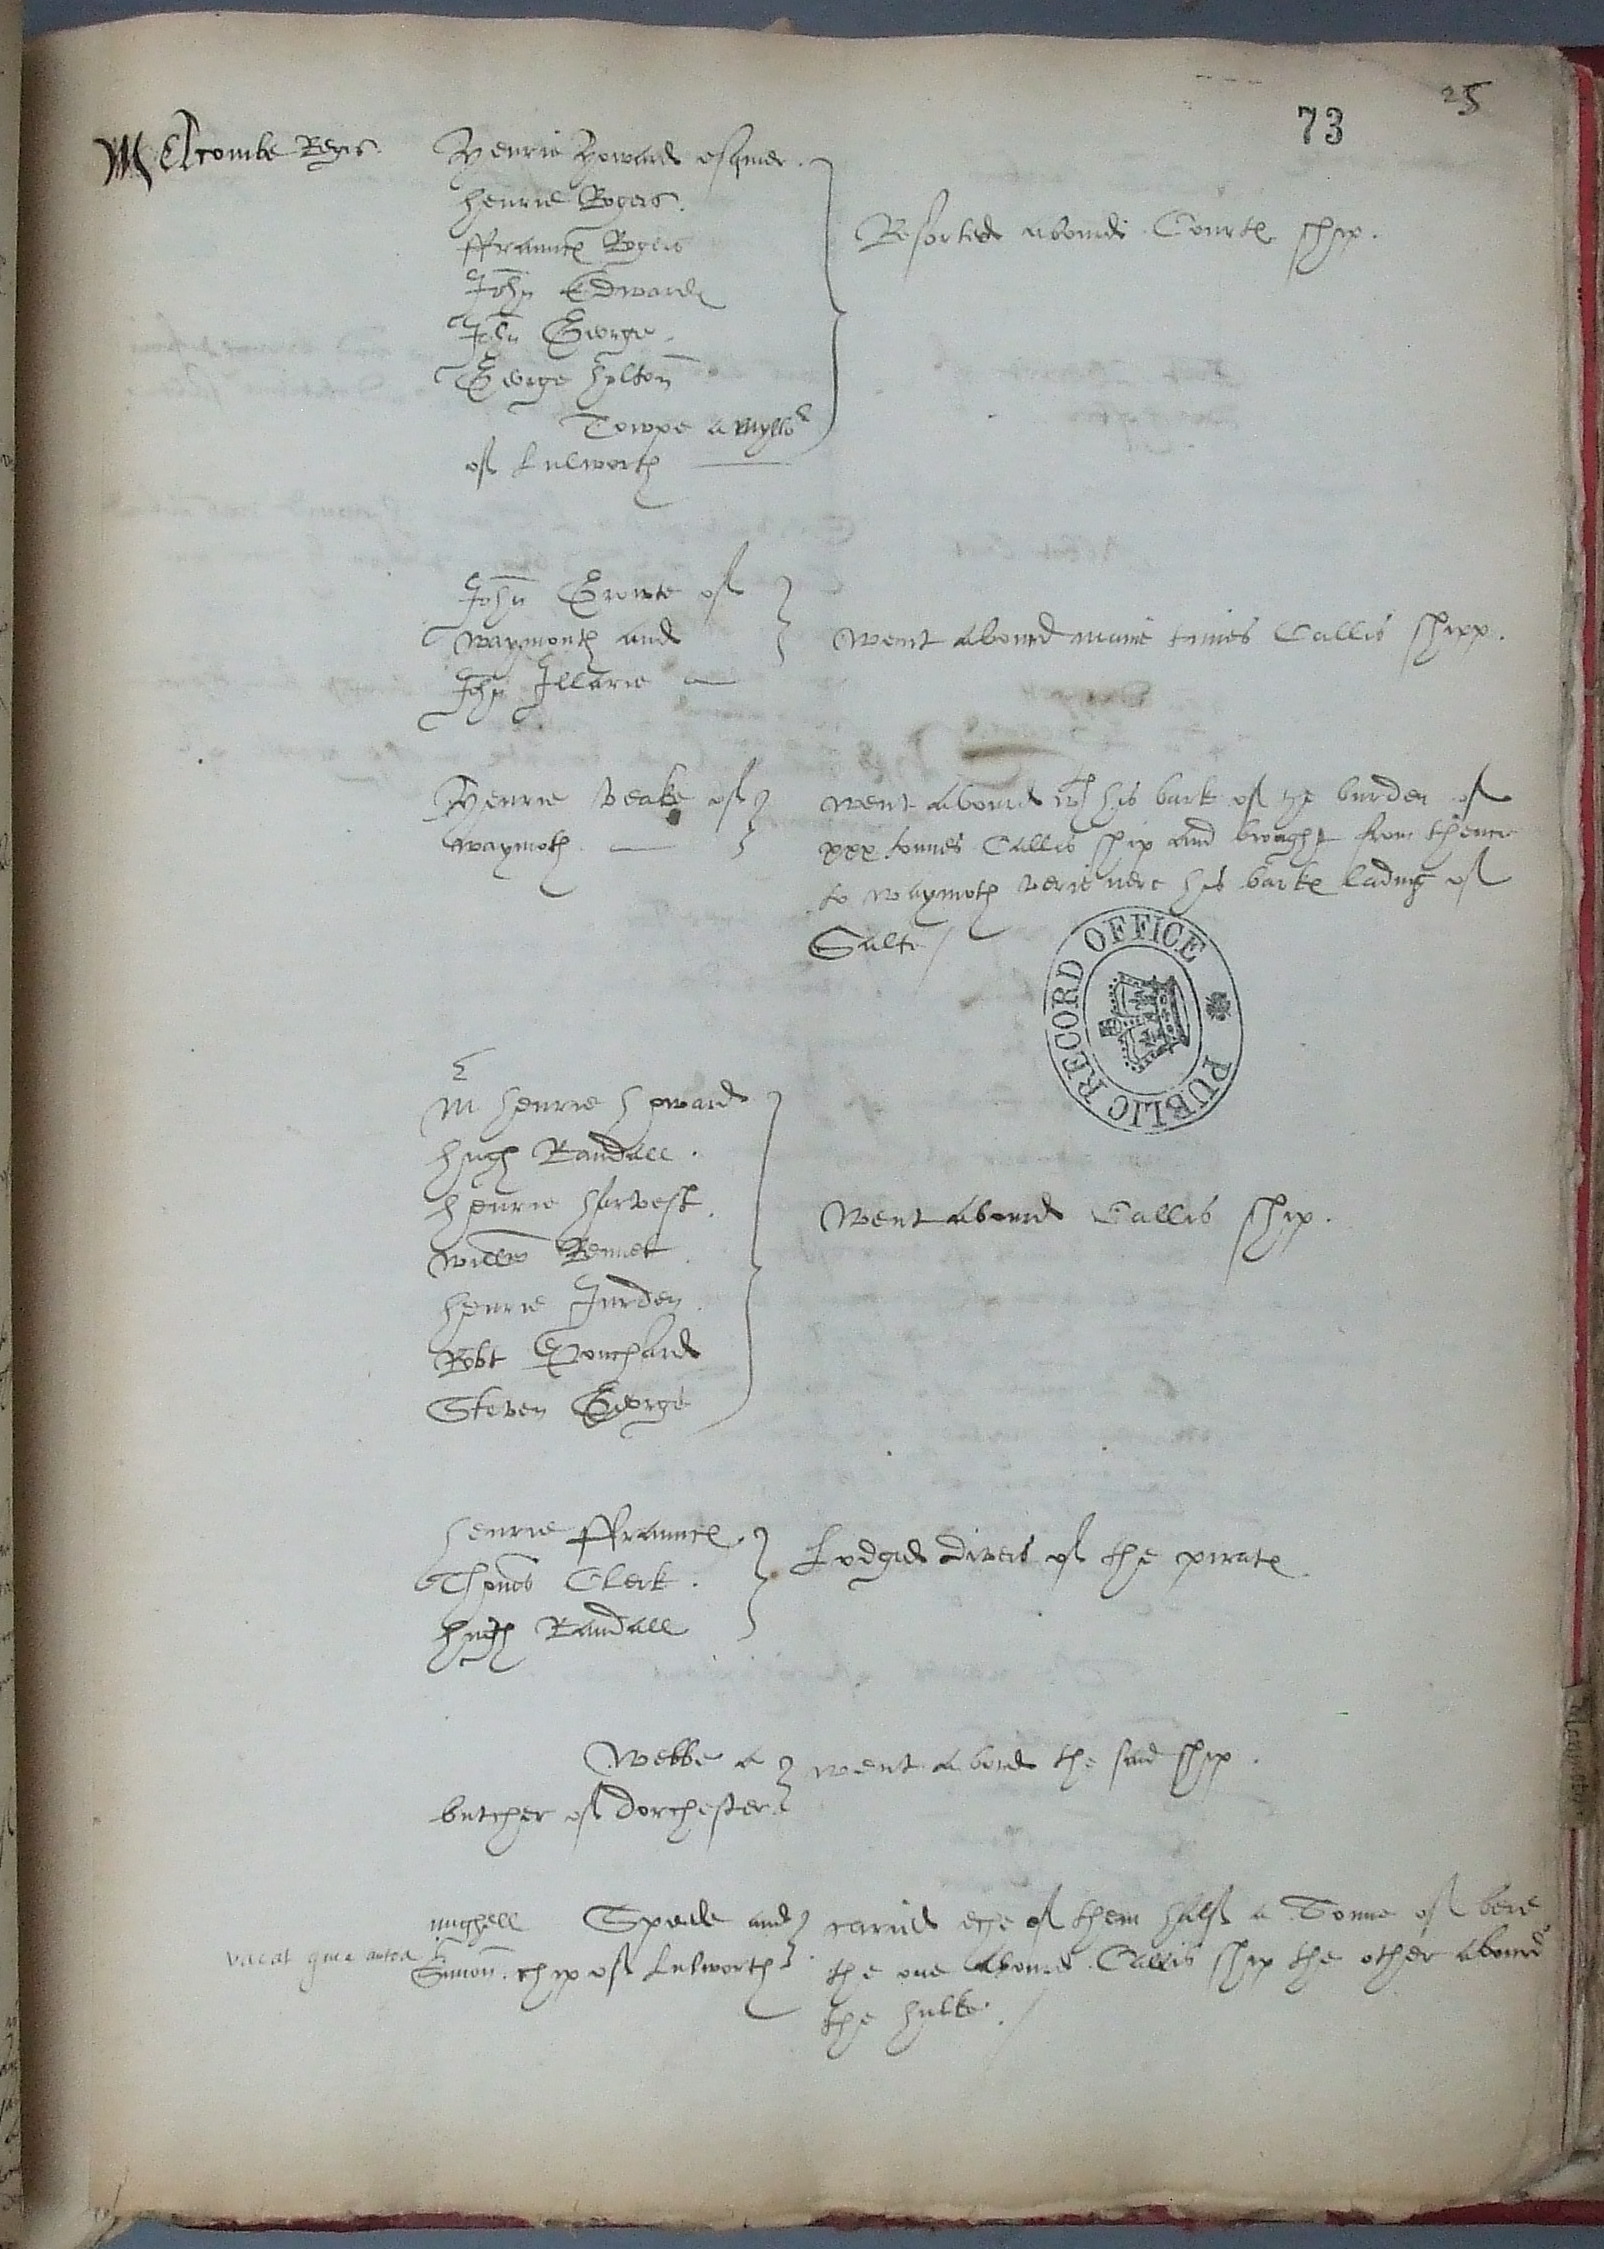 25
73
Melcombe Regis
Henrie Howard esquier
henrie Rogers
ffraunc Rogers
John Edward
John George
George hylton
Towpe a myllor
of Lulworth
Resorted abourd Court ship
John Growte of
waymouth and
John Illarie
went abourd manie times Callis shipp
Henrie Veake of
waymoth
went abourd wth his bark of the burden of
xxx tonnes Callis ship and browght from thence
to waymoth verie nere his barke lading of
Salte
PUBLIC RECORD OFFICE
Mr henrie howard
hugh Randall
henrie harvest
willm Bennet
henrie Jurden
Robt Pouchard
Steven George
Went abourd Callis ship
henrie ffraunc
Thoms Clerk
hugh Randall
Lodged divers of the pirat
Webbe a
butcher of Dorchester
went abord the said ship
mighell Spede and
vacat quia antea
Simon chip of Lulworth
caried eche of them half a Tonne of bere
the one abourd Callis ship the other abourd
the hulke